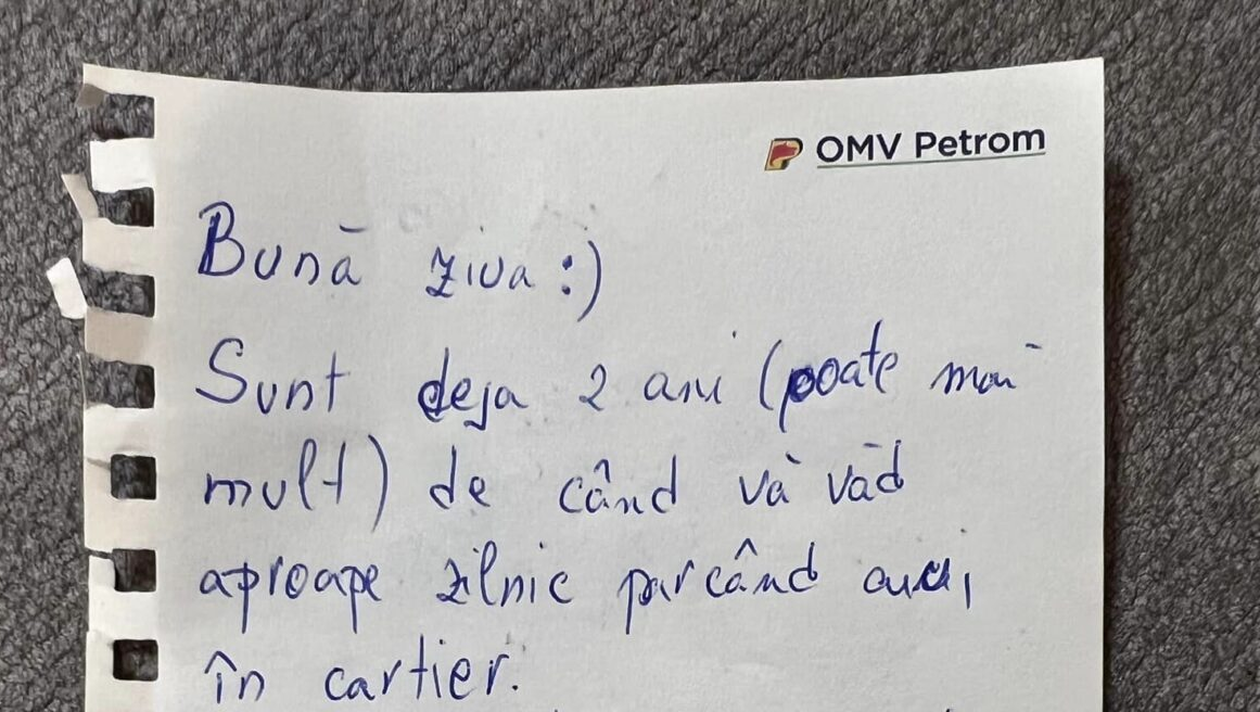 OMV Petrom
Bună ziua :)
Sunt deja 2 ani (poate mai
mult) de când vă văd
aproape zilnic parcând aici,
în cartier.